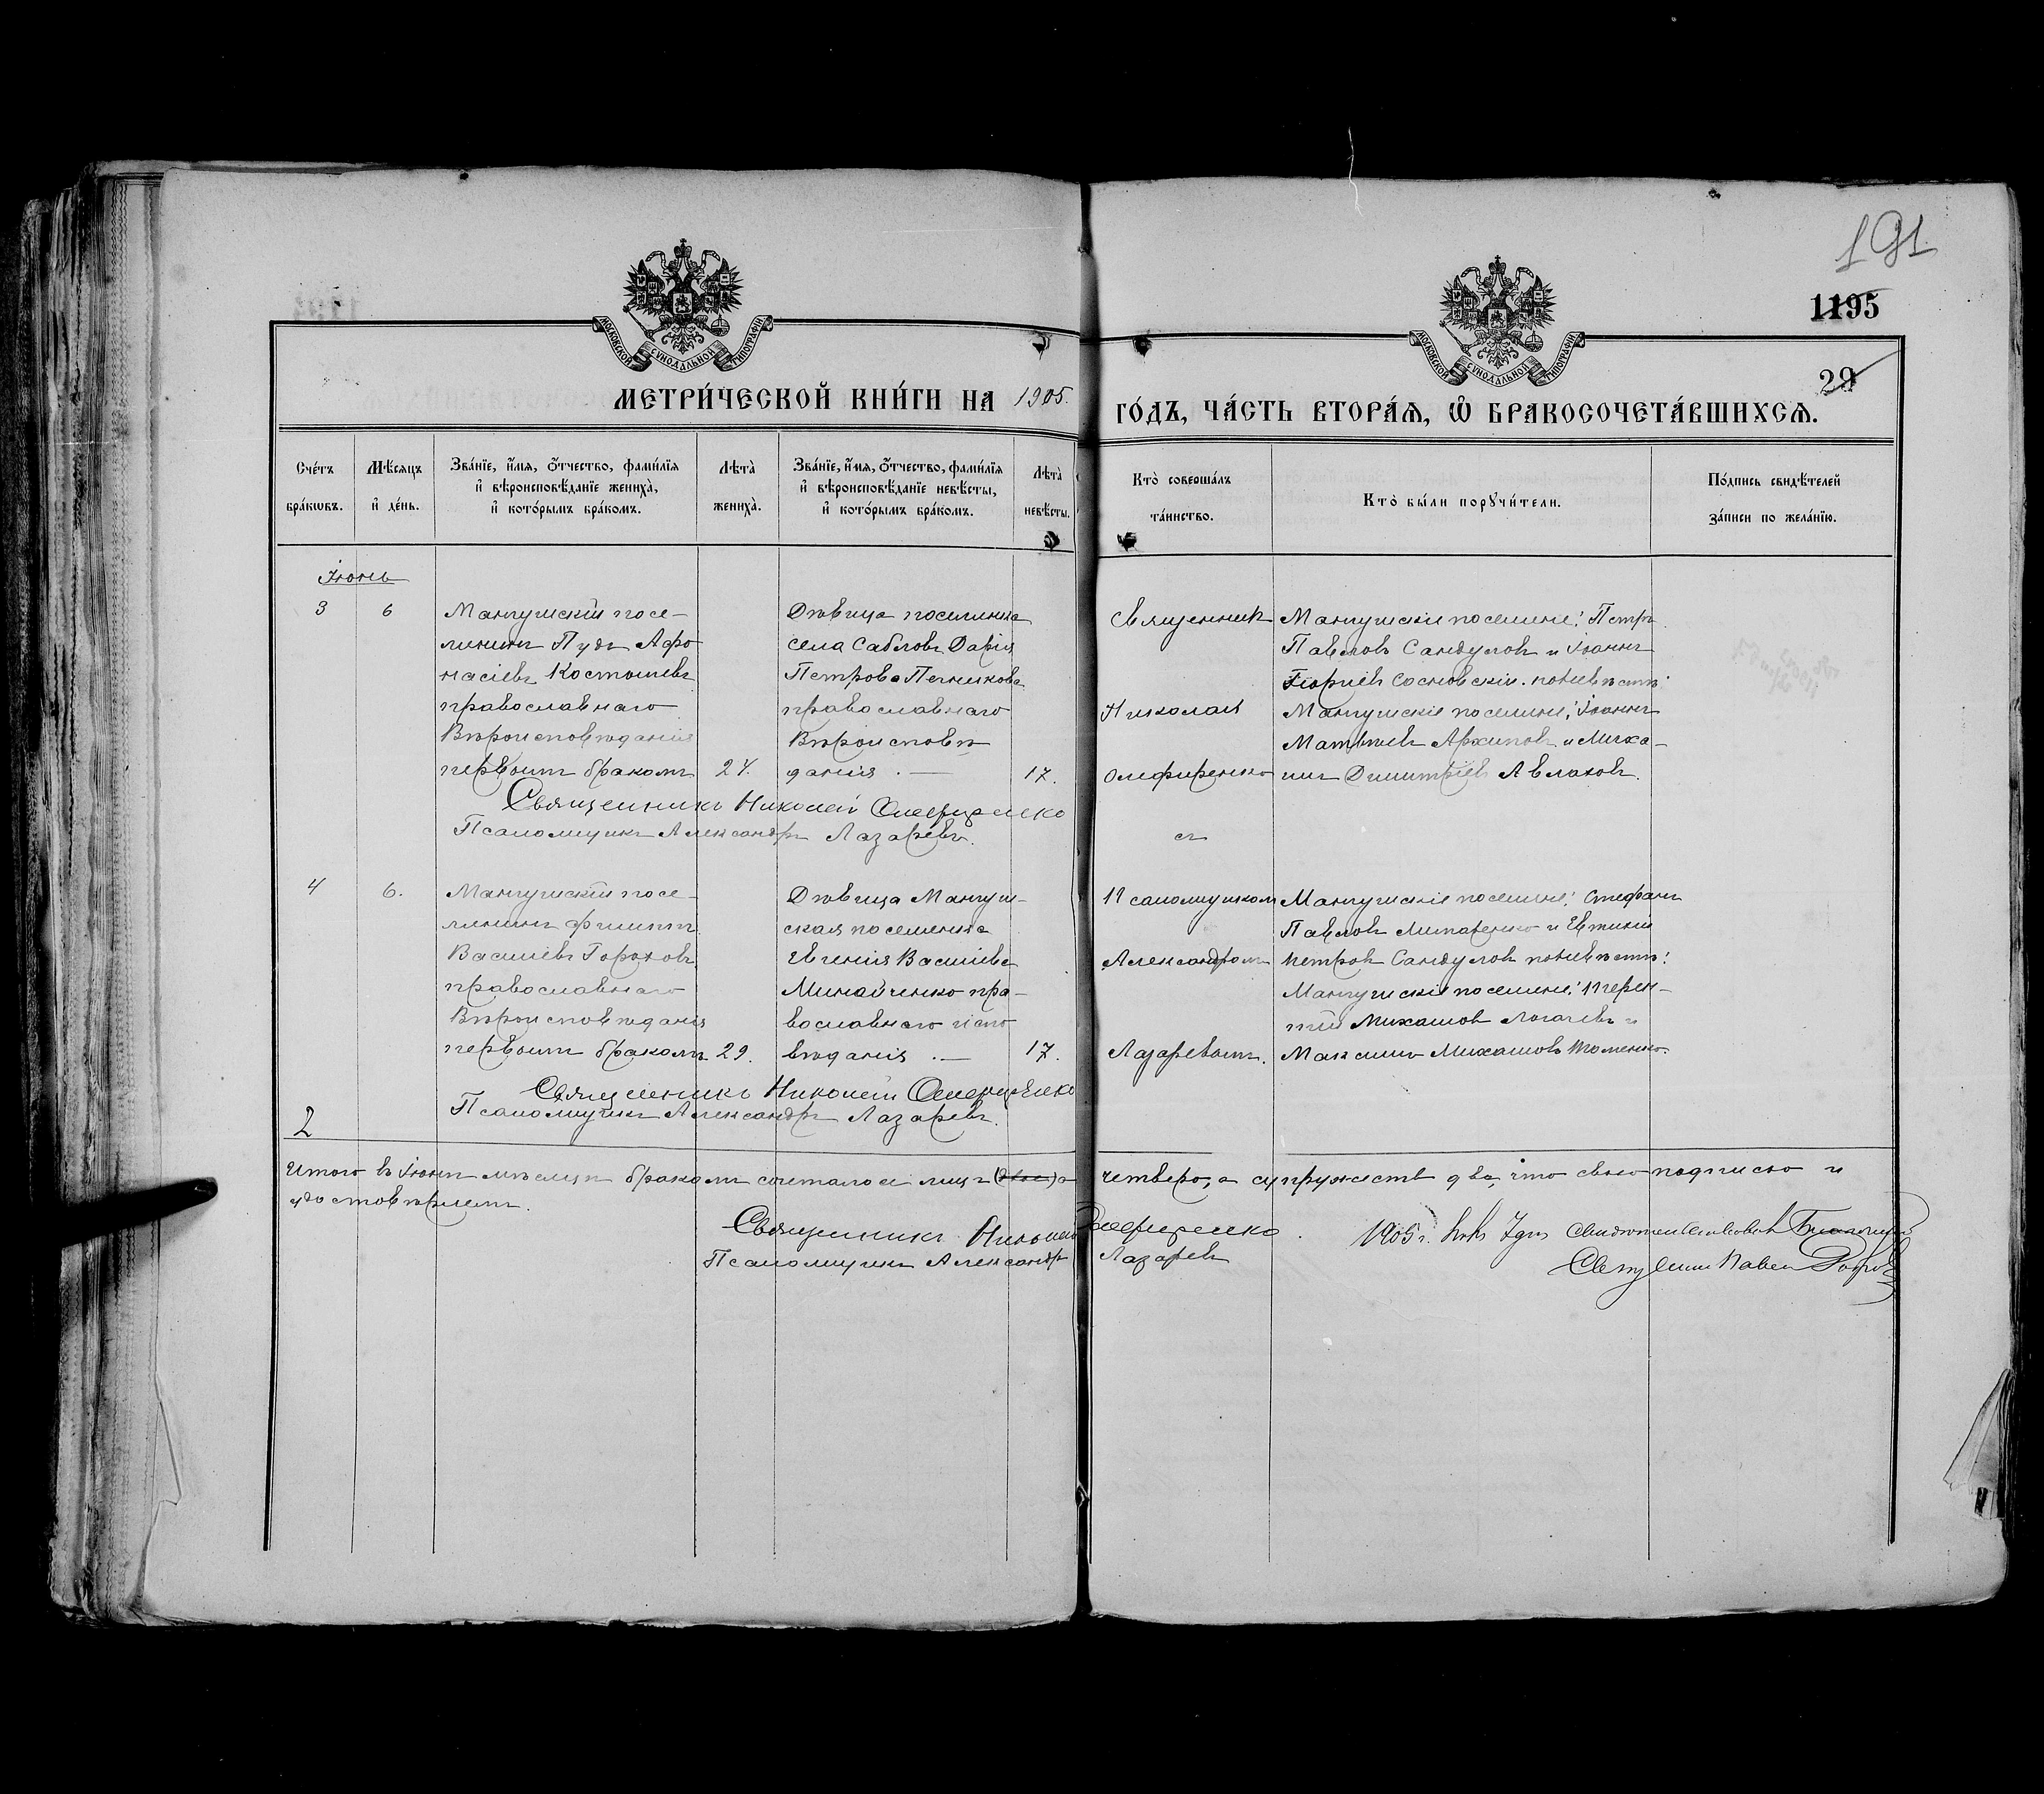 191
1195
29
МОСКОВСКОЙ СУНОДАЛЬНОЙ ТИПОГРАФІИ
МОСКОВСКОЙ СУНОДАЛЬНОЙ ТИПОГРАФІИ
МЕТРИ́ЧЕСКОЙ КНИ́ГИ НА 1905. ГО́ДЪ, ЧА́СТЬ ВТОРА́Ѧ, Ѽ БРАКОСОЧЕТА́ВШИХСѦ.
Сче́тъ
бра́кѡвъ.
Мѣ́сѧцъ
и҆ де́нь.
Зва́нїе, и҆́мѧ, ѻ҆́тчество, фами́лїѧ
и҆ вѣроисповѣ́данїе жениха̀,
и҆ кото́рымъ бра́комъ.
Лѣта̀
жениха̀.
Зва́нїе, и҆́мѧ, ѻ҆́тчество, фами́лїѧ
и҆ вѣроисповѣ́данїе невѣ́сты,
и҆ кото́рымъ бра́комъ.
Лѣта̀
невѣ́сты.
Кто̀ соверша́лъ
та́инство.
Кто̀ бы́ли порꙋчи́тели.
По́дпись свидѣ́телей
за́писи по жела́нїю.
Іюнь
3
6
Мангушскій посе-
лянинъ Пудъ Афо
насіевъ
православнаго
Вѣроисповѣданія
первымъ бракомъ
24.
Дѣвица поселянка
села Сабловъ Дарія
Петрова
православнаго
Вѣроисповѣ
данія . —
17.
Священник
Николай
Олифиренко
съ
Мангушскіе поселяне: Петръ
Павловъ Сандуловъ и Іоаннъ
Георгіевъ Сосновскій. по невѣстѣ:
Мангушскіе поселяне: Іоаннъ
Матвѣевъ Архиповъ и Миха-
илъ Димитріевъ Авлаховъ.
Священникъ Николай Олефиренко
Псаломщикъ Александръ Лазаревъ.
4
6.
Мангушскій посе-
лянинъ Филиппъ
Василіевъ Гороховъ
православнаго
Вѣроисповѣданія
первымъ бракомъ
29.
Дѣвица Мангуш-
ская поселянка
Евгенія Василіева
Минайченко пра-
вославнаго испо
вѣданія . —
17.
Псаломщиком
Александромъ
Лазаревымъ.
Мангушскіе поселяне: Стефанъ
Павловъ Литаренко и Евтихій
Петровъ Сандуловъ по невѣстѣ:
Мангушскіе поселяне:
Михаиловъ Логачевъ и
Максимъ Михаиловъ Томенко.
Священникъ Николай Олефиренко
Псаломщикъ Александръ Лазаревъ.
2
Итого въ Іюнѣ мѣсяцѣ бракомъ сочеталось лицъ четверо, а супружествъ два, что своею подписью и
удостовѣряемъ.
Священникъ Николай Олефиренко
Псаломщикъ Александръ Лазаревъ
1905 г. свидѣтельствовалъ Благочинный
Священникъ Павелъ